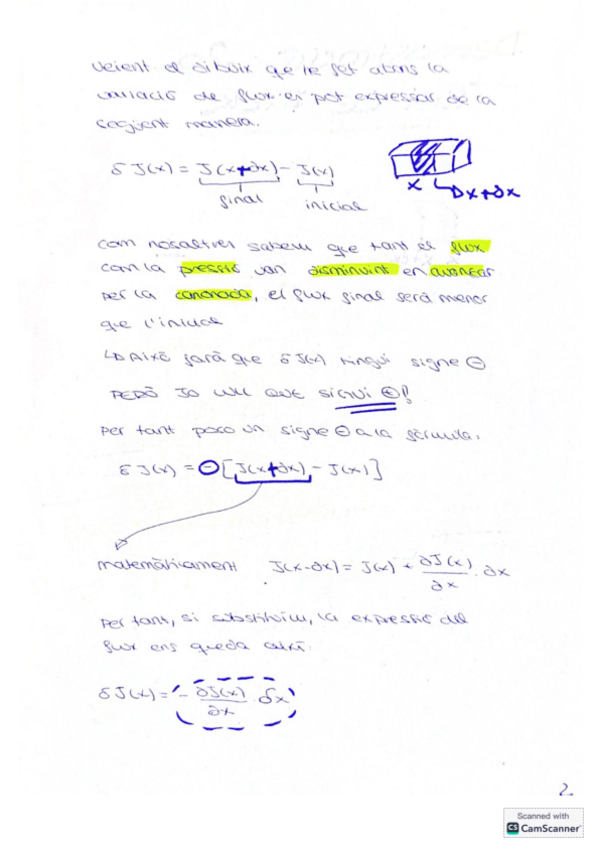 Veient el dibuix que he fet abans la
variació de flux es pot expressar de la
següent manera.
δ J(x) = J(x+∂x) - J(x)
final
inicial
x ↳ x+∂x
Com nosaltres sabem que tant el flux
com la pressió van disminuint en avançar
per la canonada, el flux final serà menor
que l'inicial
↳ Això farà que δJ(x) tingui signe ⊖
PERÒ JO VULL QUE SIGUI ⊕!
Per tant poso un signe ⊖ a la fórmula.
δ J(x) = ⊖ [J(x+∂x) - J(x)]
matemàticament J(x-∂x) = J(x) + ∂J(x)/∂x · ∂x
Per tant, si substituïm, la expressió del
flux ens queda així:
δJ(x) = - ∂J(x)/∂x · δx
2
Scanned with
CS CamScanner